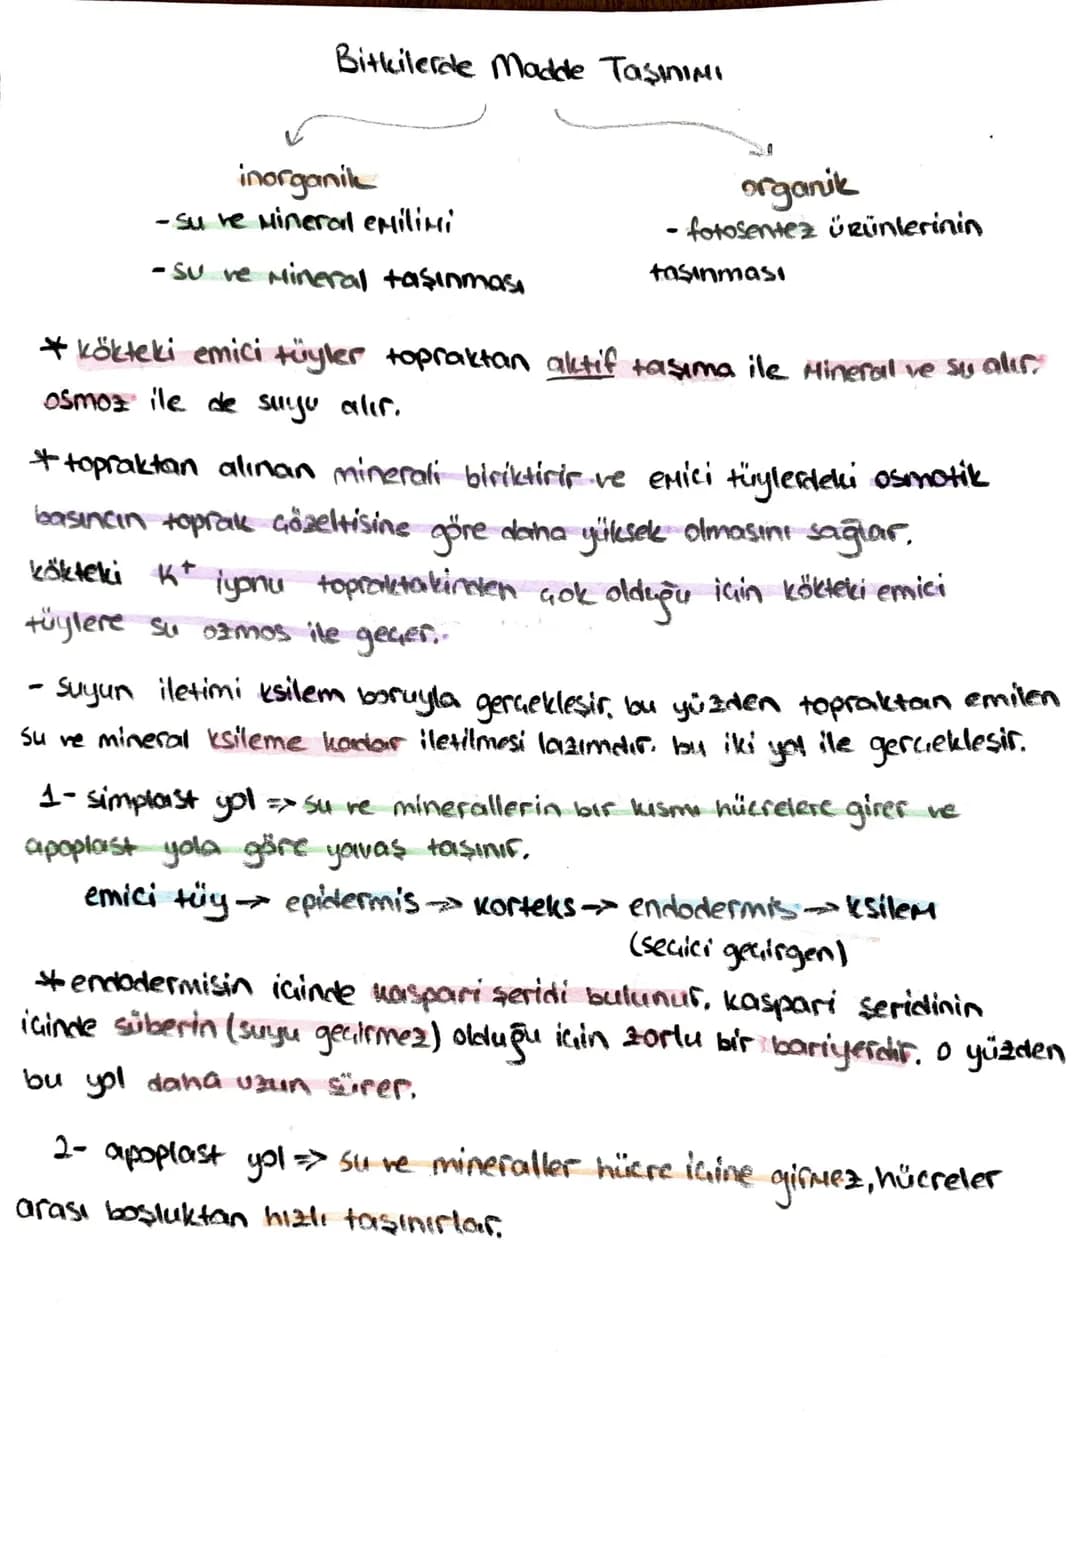 Bitkilerde Madde Taşınımı
inorganik
organik
- su ve mineral emilimi
- fotosentez ürünlerinin
- su ve mineral taşınması
taşınması
* kökteki emici tüyler topraktan aktif taşıma ile mineral ve su alır.
osmoz ile de suyu alır.
* topraktan alınan minerali biriktirir ve emici tüylerdeki osmotik
basıncın toprak çözeltisine göre daha yüksek olmasını sağlar.
kökteki K+ iyonu topraktakinden çok olduğu için kökteki emici
tüylere su ozmos ile geçer.
- suyun iletimi ksilem boruyla gerçekleşir. bu yüzden topraktan emilen
su ve mineral ksileme kadar iletilmesi lazımdır. bu iki yol ile gerçekleşir.
1- simplast yol => su ve minerallerin bir kısmı hücrelere girer ve
apoplast yola göre yavaş taşınır.
emici tüy → epidermis → korteks → endodermis → ksilem
(seçici geçirgen)
* endodermisin içinde kaspari şeridi bulunur. kaspari şeridinin
içinde süberin (suyu geçirmez) olduğu için zorlu bir bariyerdir. o yüzden
bu yol daha uzun sürer.
2- apoplast yol => su ve mineraller hücre içine girmez, hücreler
arası boşluktan hızlı taşınırlar.